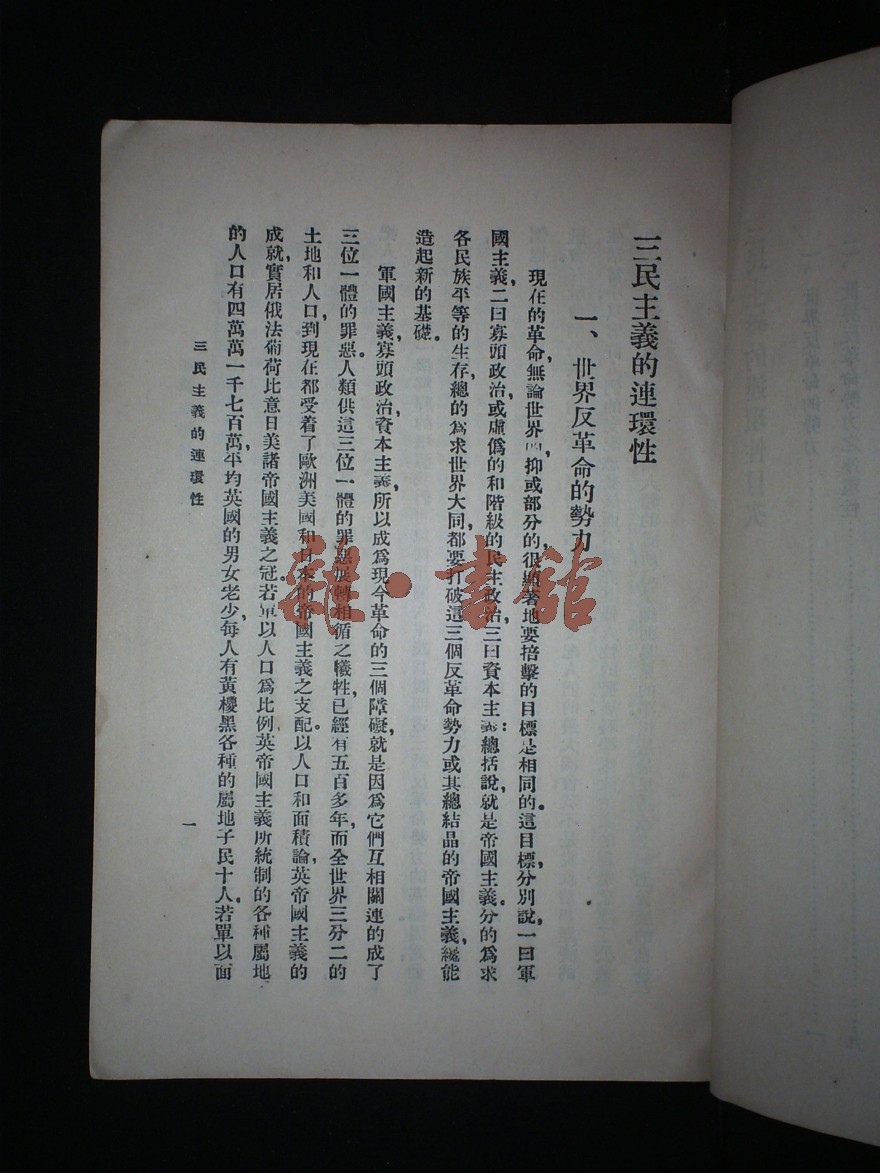 三民主義的連環性
一、世界反革命的勢力
現在的革命，無論世界的抑或部分的，很顯著地要掊擊的目標是相同的。這目標，分別說，一曰軍
國主義，二曰寡頭政治，或虛僞的和階級的民主政治，三曰資本主義：總括說，就是帝國主義。分的爲求
各民族平等的生存，總的爲求世界大同，都要打破這三個反革命勢力或其總結晶的帝國主義，纔能
造起新的基礎。
軍國主義，寡頭政治，資本主義，所以成爲現今革命的三個障礙，就是因爲它們互相關連的成了
三位一體的罪惡。人類供這三位一體的罪惡展轉相循之犧牲，已經有五百多年，而全世界三分二的
土地和人口，到現在都受着了歐洲美國和日本的帝國主義之支配。以人口和面積論，英帝國主義的
成就，實居俄法葡荷比意日美諸帝國主義之冠。若單以人口爲比例，英帝國主義所統制的各種屬地
的人口有四萬萬一千七百萬，平均英國的男女老少，每人有黃椶黑各種的屬地子民十人。若單以面
三民主義的連環性
一
雜·書館